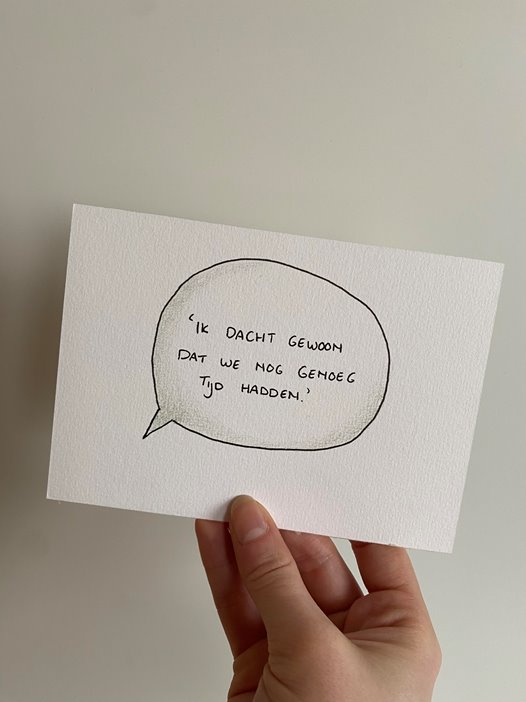 ‘IK DACHT GEWOON
DAT WE NOG GENOEG
TIJD HADDEN.’